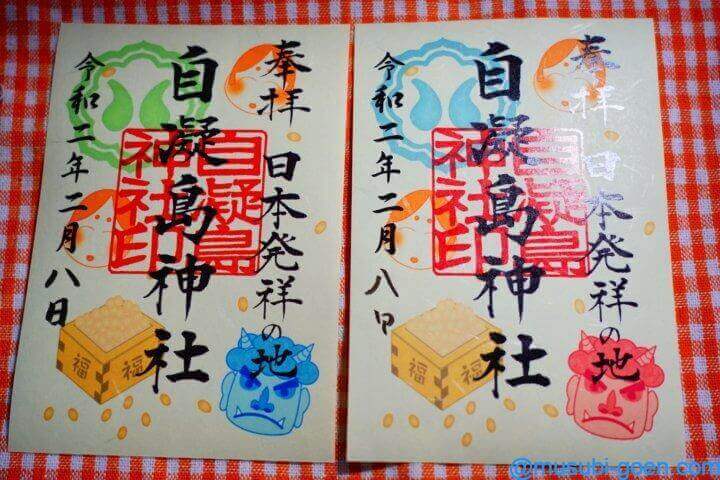 奉拝
日本発祥の地
自凝島神社
自凝島
神社印
令和二年二月八日
福
福
奉拝
日本発祥の地
自凝島神社
自凝島
神社印
令和二年二月八日
福
福
@musubi-goen.com